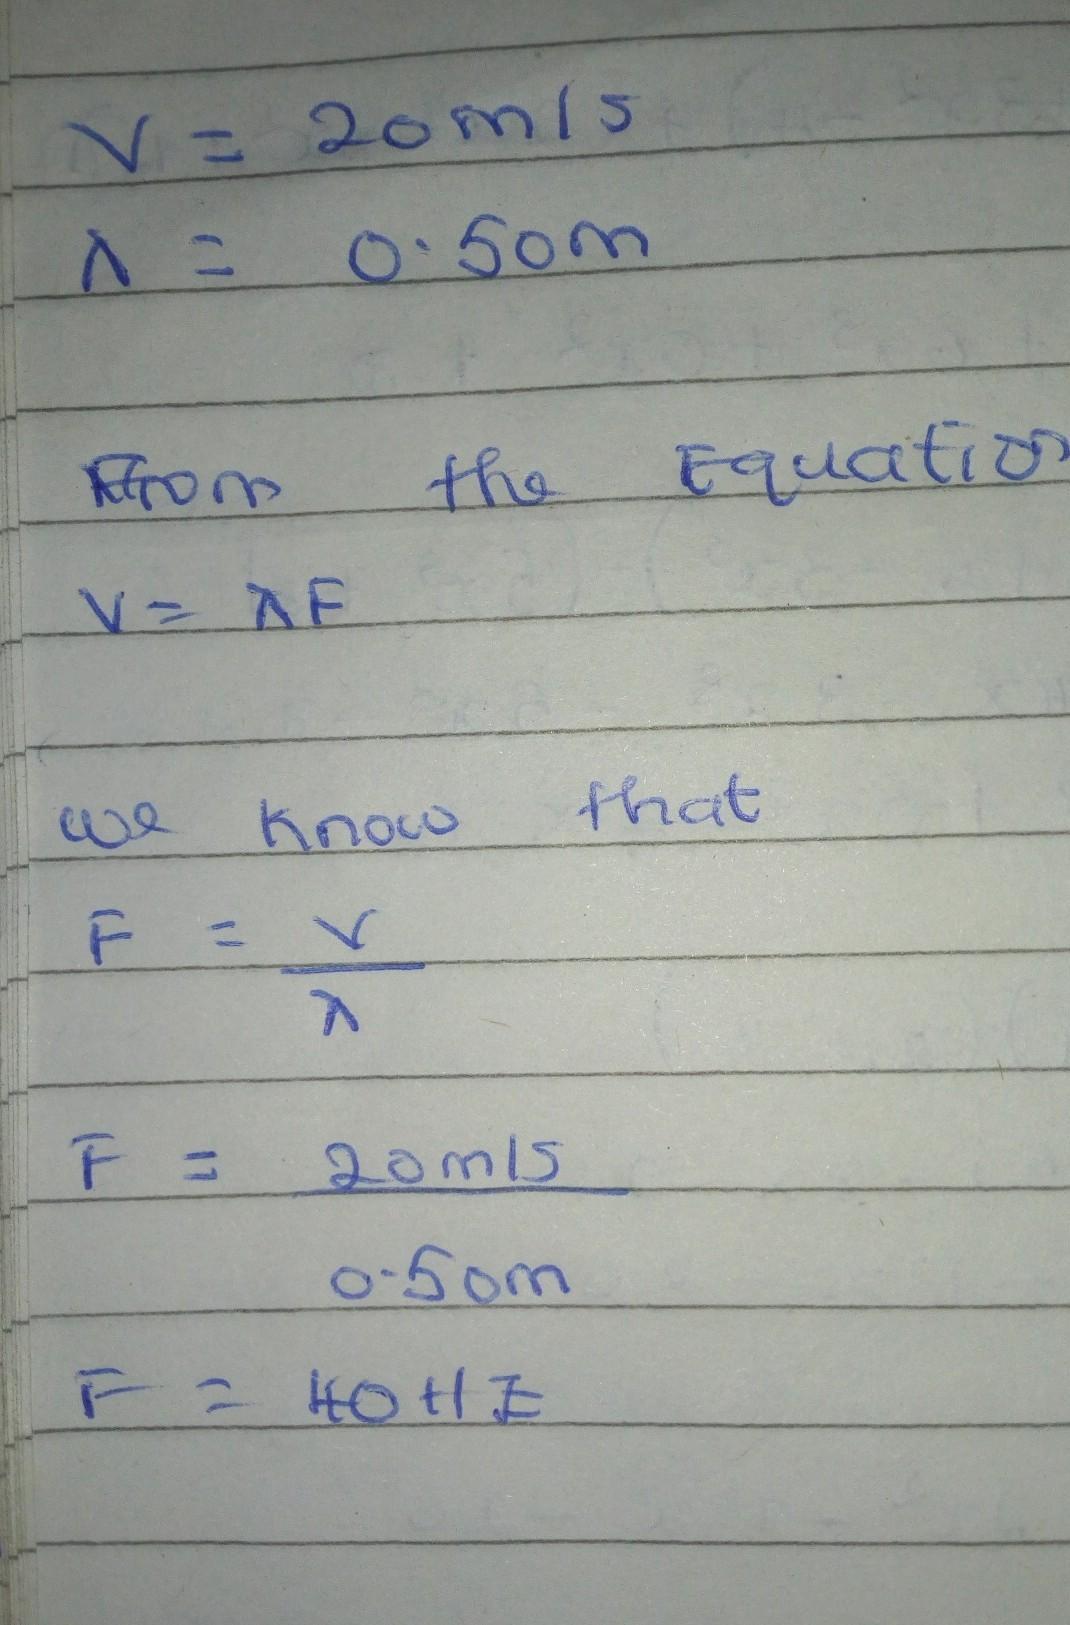 V = 20m/s
λ = 0.50m
From the Equation
V = λF
we know that
F = V
λ
F = 20m/s
0.50m
F = 40HZ